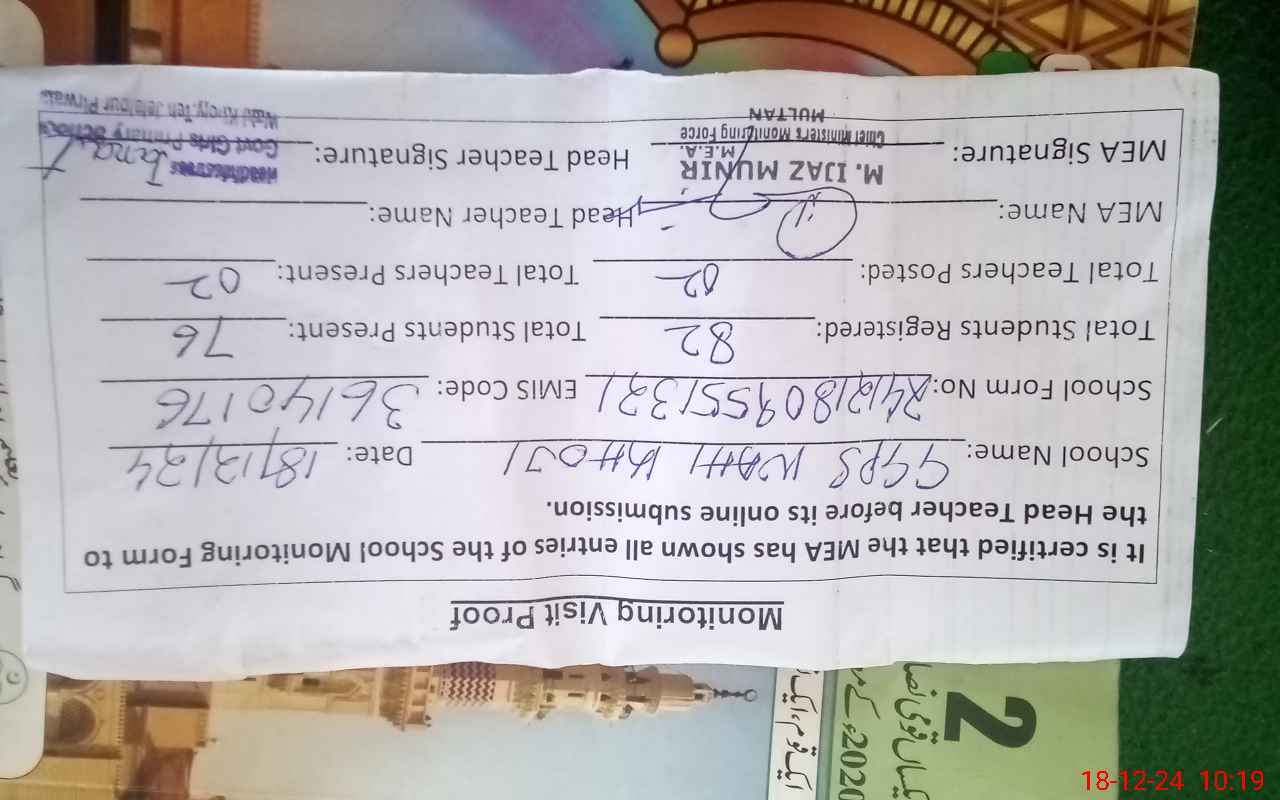 Monitoring Visit Proof
It is certified that the MEA has shown all entries of the School Monitoring Form to
the Head Teacher before its online submission.
School Name: GGPS WAHI KHOJI Date: 18/12/24
School Form No: 24121809551321 EMIS Code: 36140176
Total Students Registered: 82 Total Students Present: 76
Total Teachers Posted: 02 Total Teachers Present: 02
MEA Name: Head Teacher Name:
MEA Signature: Head Teacher Signature:
M. IJAZ MUNIR
M.E.A.
Chief Minister's Monitoring Force
MULTAN
Headmistress
Govt Girls Primary School
Wahi Khojy, Teh Jalalpur Pirwala
2
یکساں قومی نصاب
2020ء کے
ایک قوم، ایک
18-12-24 10:19